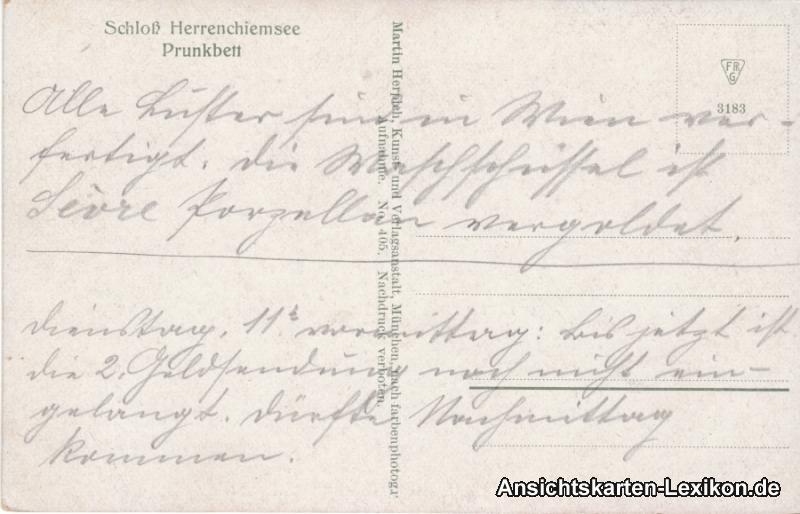 Schloß Herrenchiemsee
Prunkbett
Martin Herpich, Kunst- und Verlagsanstalt, München, nach farbenphotogr.
Aufnahme. No. 405. Nachdruck verboten.
3183
Alle Lüster sind in Wien ver-
fertigt. Die Waschschüssel ist
Sèvre Porzellan vergoldet.
Dienstag, 11h vormittag: bis jetzt ist
die 2. Geldsendung noch nicht ein-
gelangt. Dürfte Nachmittag
kommen.
Ansichtskarten-Lexikon.de